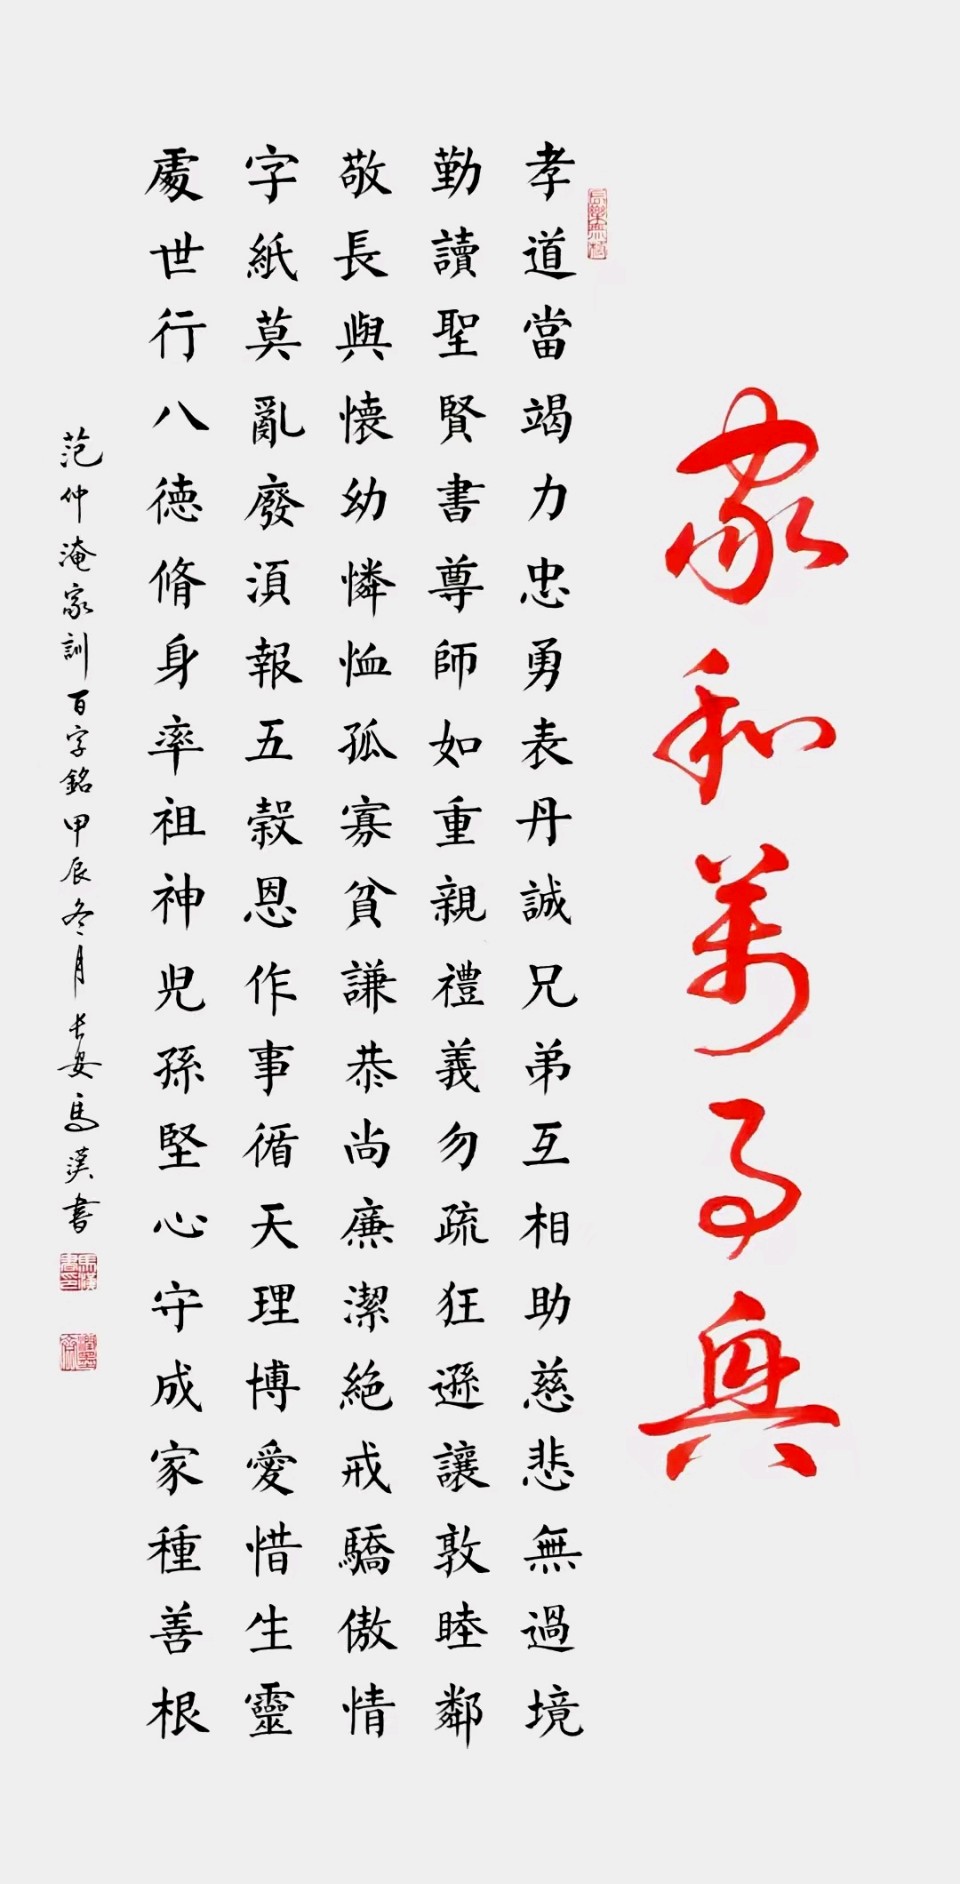 家和萬事興
孝道當竭力忠勇表丹誠兄弟互相助慈悲無過境
勤讀聖賢書尊師如重親禮義勿疏狂遜讓敦睦鄰
敬長與懷幼憐恤孤寡貧謙恭尚廉潔絕戒驕傲情
字紙莫亂廢須報五穀恩作事循天理博愛惜生靈
處世行八德脩身率祖神兒孫堅心守成家種善根
范仲淹家訓百字銘甲辰冬月長安馬漢書